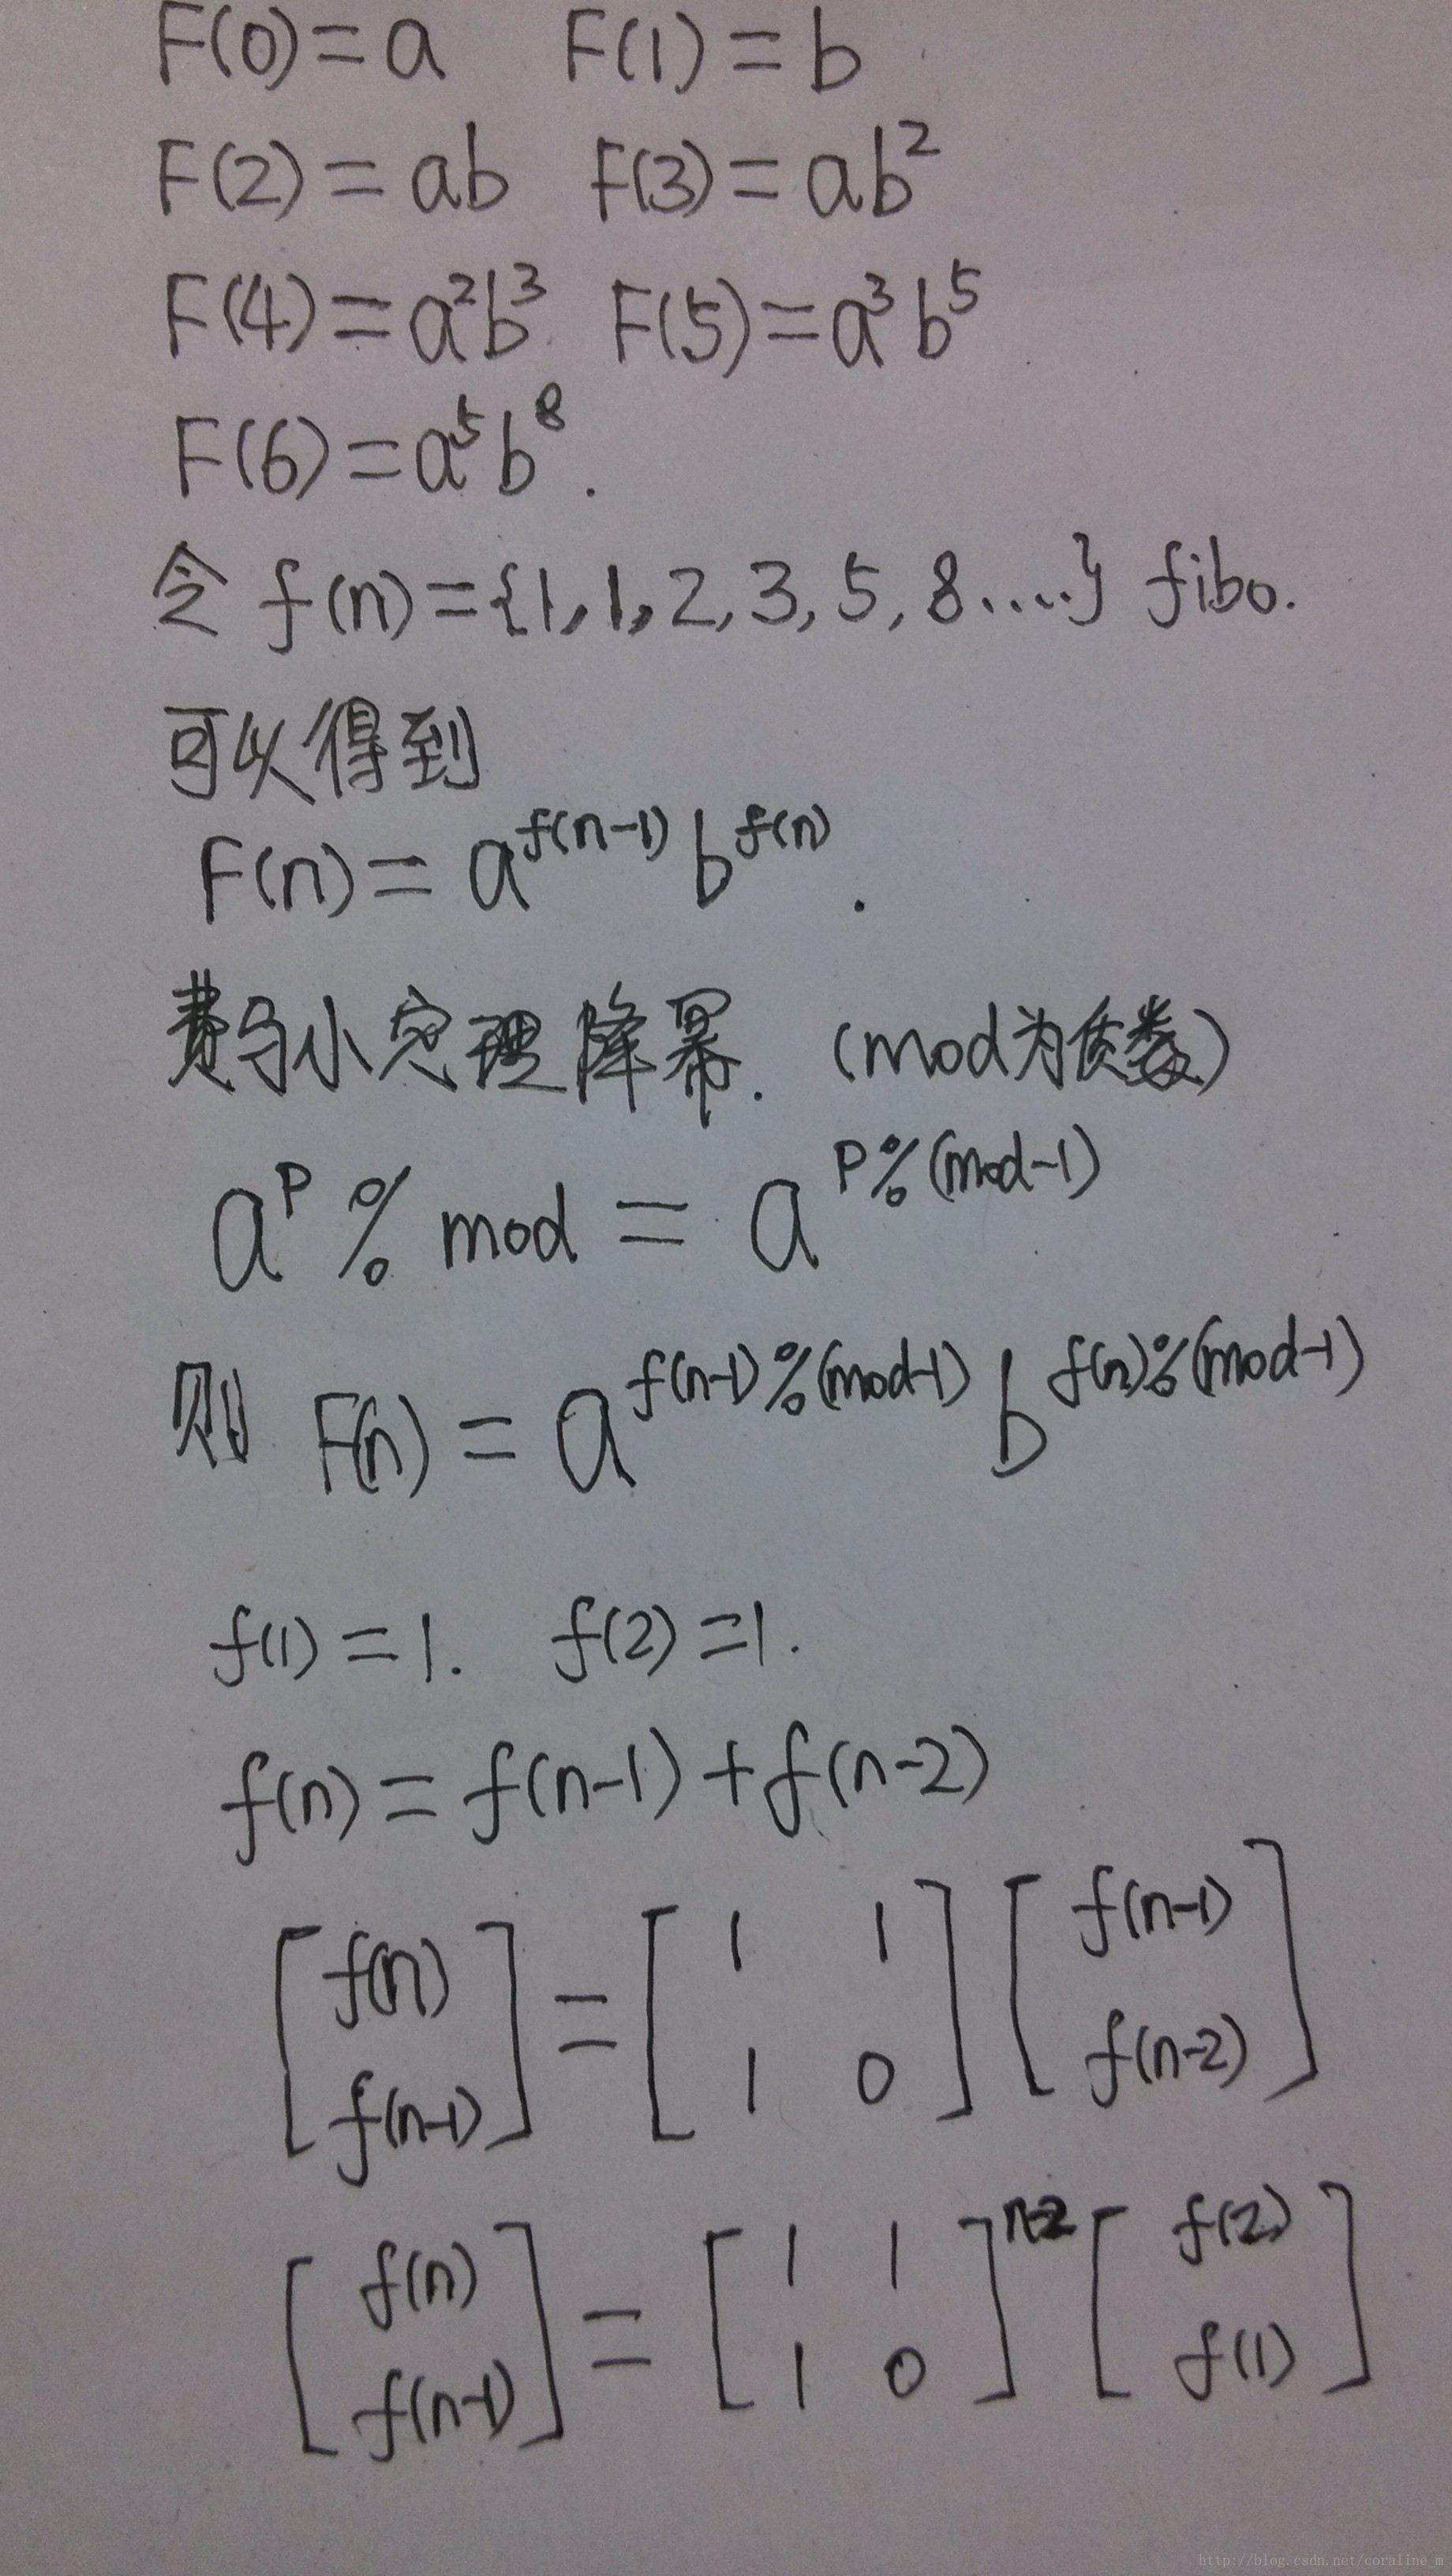 F(0)=a F(1)=b
F(2)=ab F(3)=ab²
F(4)=a²b³ F(5)=a³b⁵
F(6)=a⁵b⁸.
令 f(n)={1,1,2,3,5,8....} fibo.
可以得到
F(n)=a^f(n-1) b^f(n).
费马小定理降幂. (mod为质数)
a^P % mod = a^P%(mod-1)
则 F(n)=a^f(n-1)%(mod-1) b^f(n)%(mod-1)
f(1)=1. f(2)=1.
f(n)=f(n-1)+f(n-2)
[f(n) f(n-1)] = [1 1 1 0] [f(n-1) f(n-2)]
[f(n) f(n-1)] = [1 1 1 0]^n-2 [f(2) f(1)]
http://blog.csdn.net/coraline_m